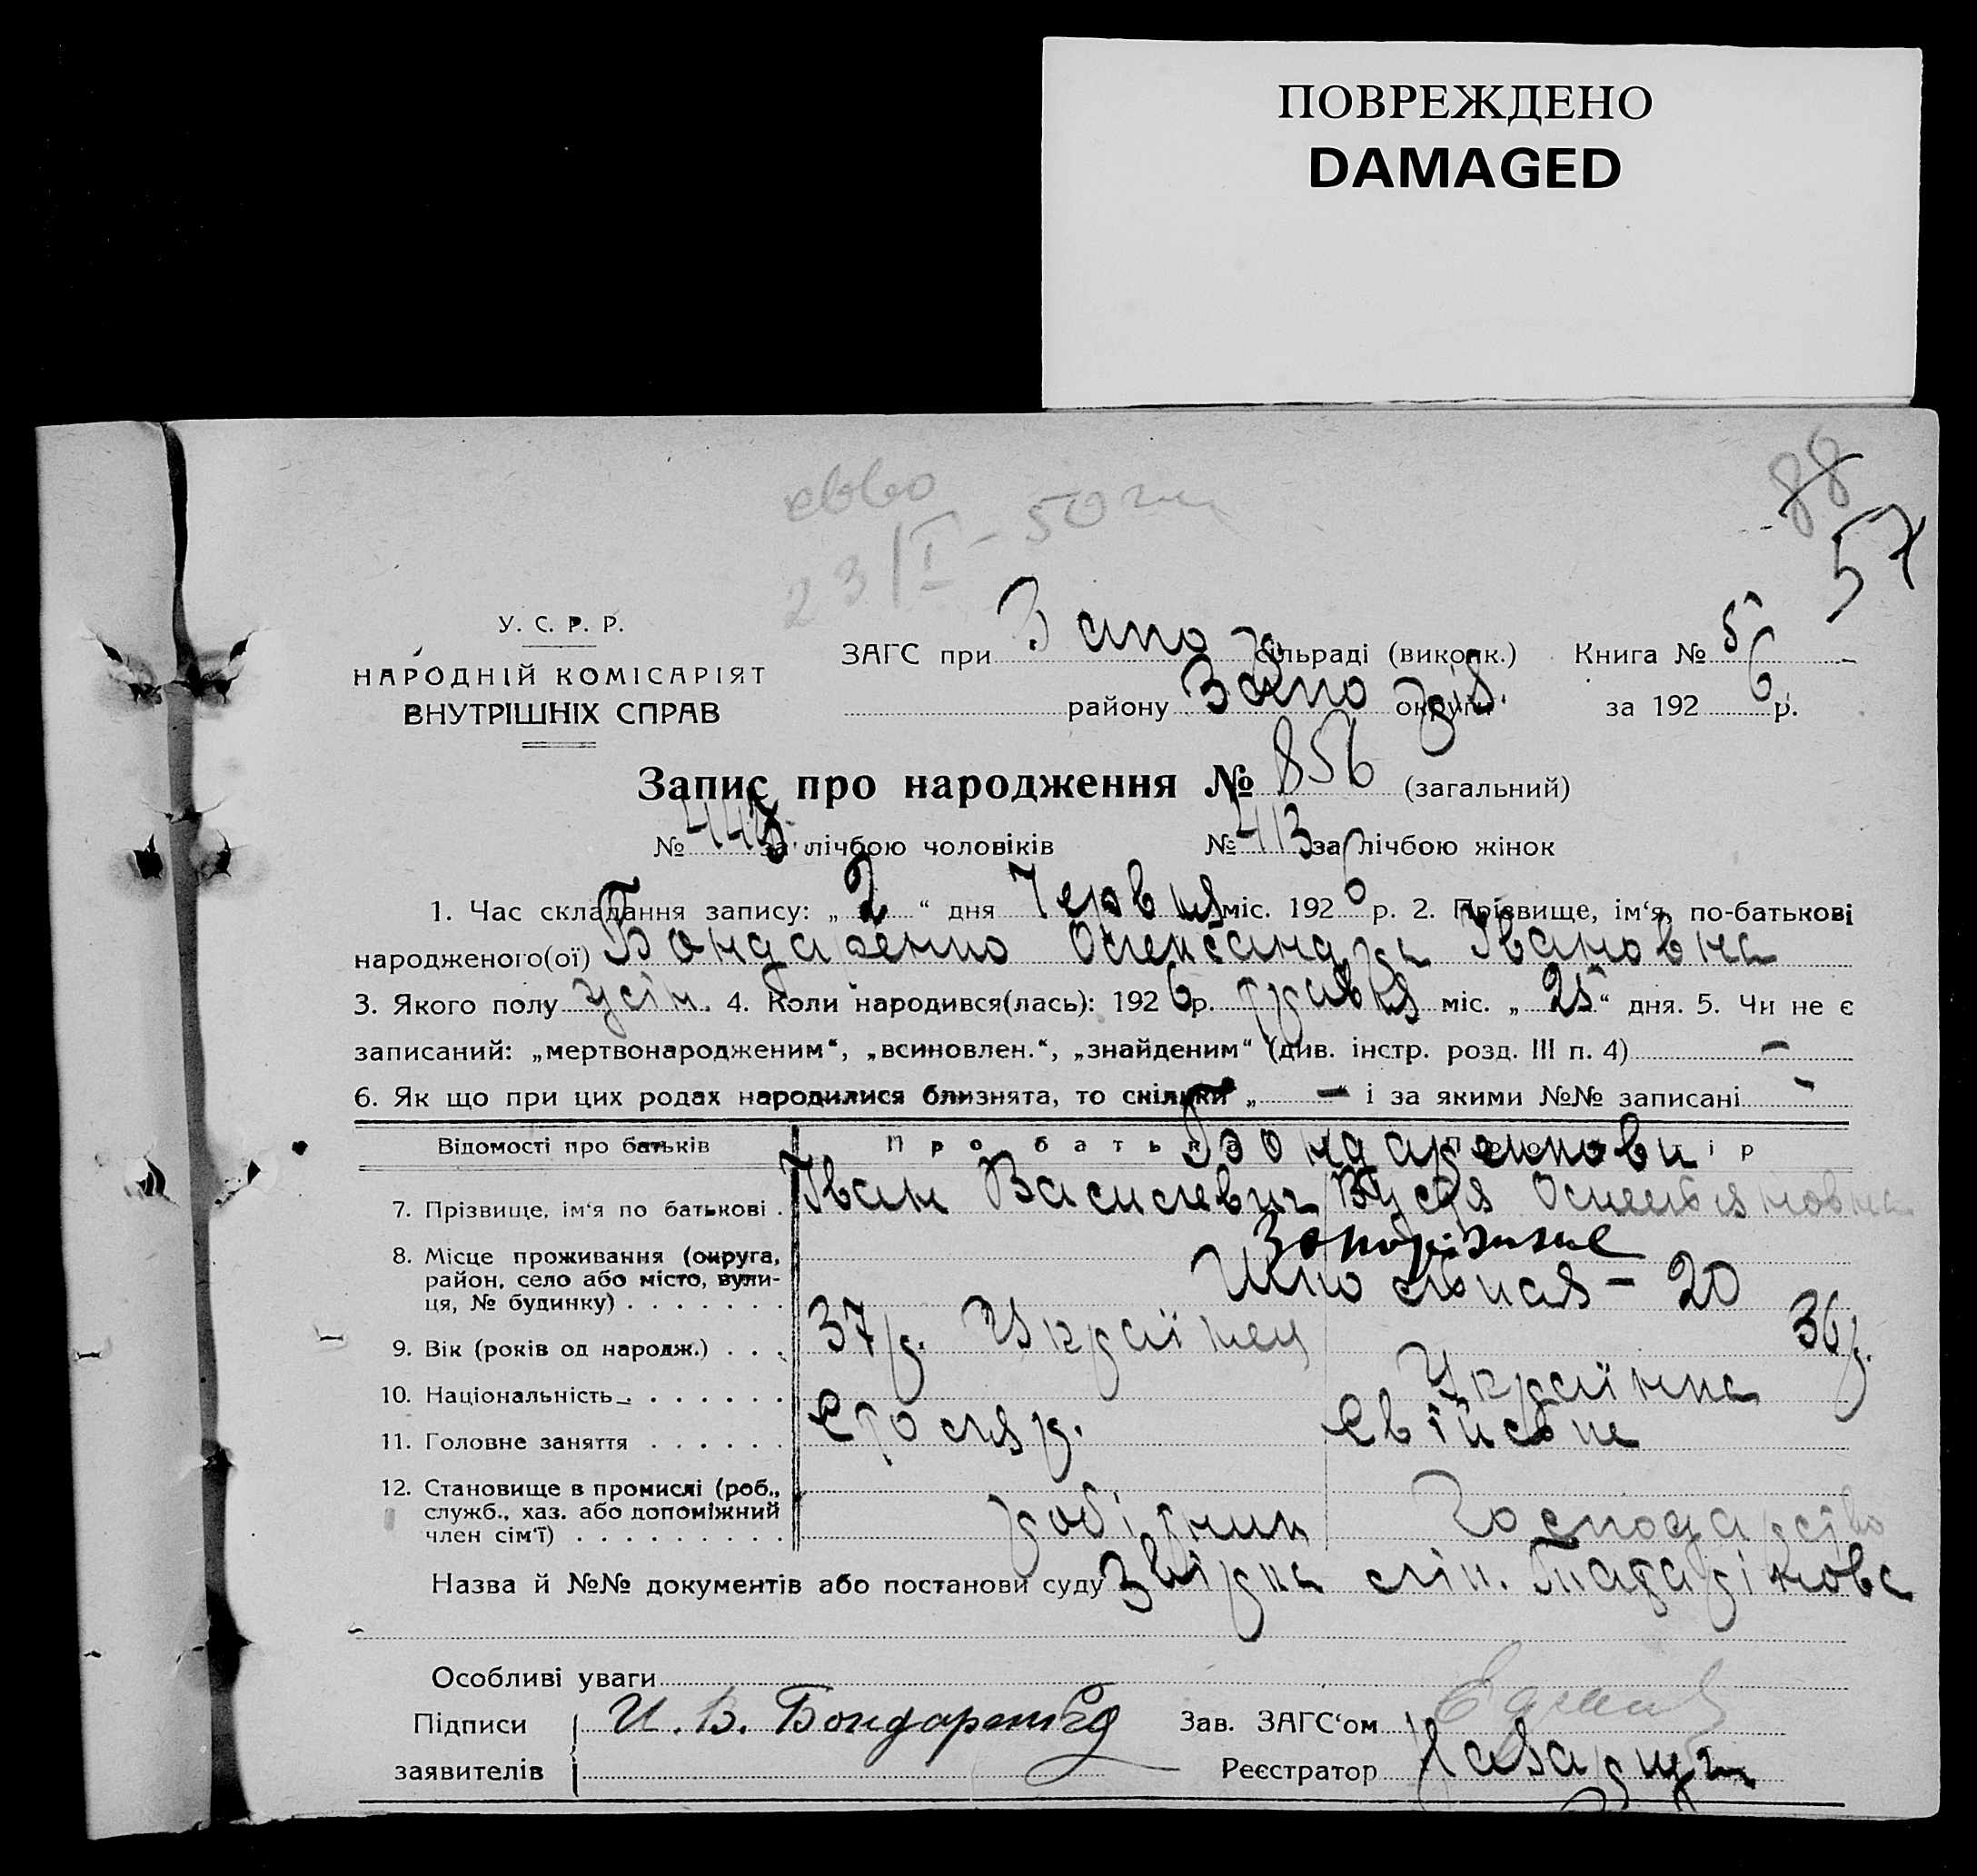 ПОВРЕЖДЕНО
DAMAGED
88
57
23/I-50
У. С. Р. Р.
НАРОДНІЙ КОМІСАРІЯТ
ВНУТРІШНІХ СПРАВ
ЗАГС при Запо сільраді (виконк.) Книга № 5
району Запо округи за 192 6 р.
Запис про народження № 856 (загальний)
№ 443 за лічбою чоловіків № 413 за лічбою жінок
1. Час складання запису: „ 2 “ дня Червня міс. 192 6 р. 2. Прізвище, ім‘я, по-батькові
народженого(ої) Бондаренко Олександра Івановна
3. Якого полу жін. 4. Коли народився(лась): 192 6 р. травня міс. „ 25 “ дня. 5. Чи не є
записаний: „мертвонародженим“, „всиновлен.“, „знайденим“ (див. інстр. розд. III п. 4) —
6. Як що при цих родах народилися близнята, то скільки „ — “ і за якими №№ записані -
Відомості про батьків Про батька Бондаренкови
7. Прізвище, ім‘я по батькові . Іван Василевич
8. Місце проживання (округа, район, село або місто, вулиця, № будинку) . . . . . . . Запоріжже
- 20
9. Вік (років од народж.) . . . 37 р. Українец 36 р.
10. Національність . . . . . . Українка
11. Головне заняття . . . . . . столяр. свійське
12. Становище в промислі (роб., служб., хаз. або допоміжний член сім‘ї) . . . . . . . . . робітник Господарство
Назва й №№ документів або постанови суду
Особливі уваги
Підписи И. В. Бондаренко Зав. ЗАГС‘ом
заявителів Реєстратор